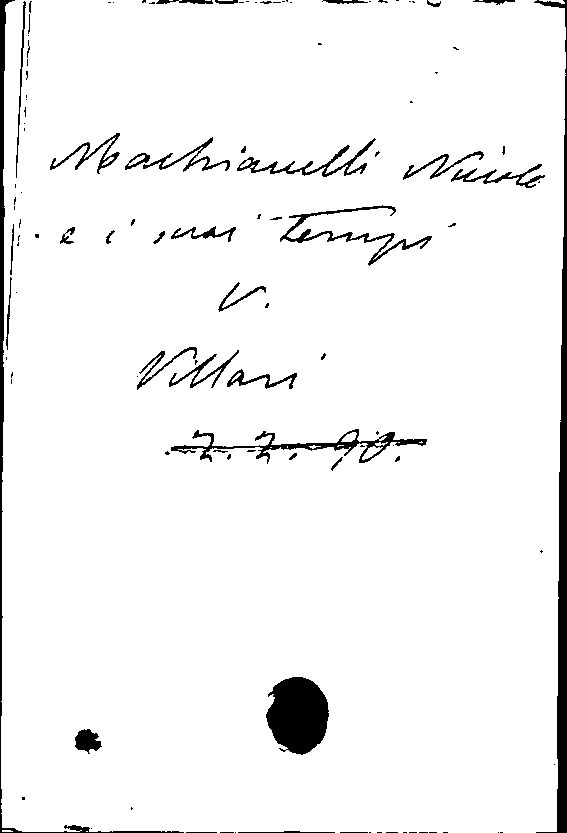 Machiavelli Nicolo
e i suoi tempi
V.
Villari
2. 2. 90.